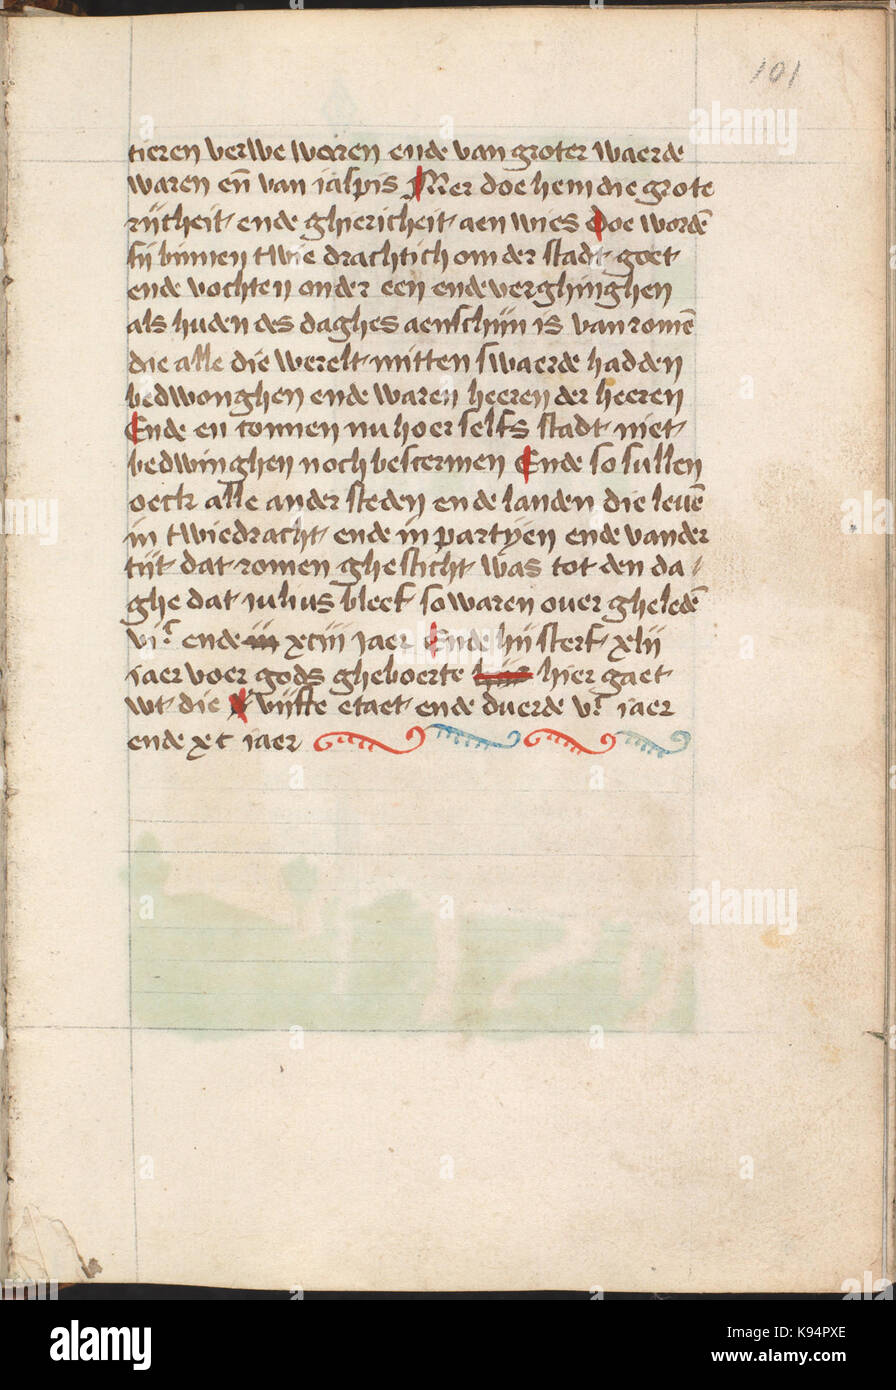 101
tieren verwe woren ende van groter waerde
waren eñ van iaspis Mer doe hem die grote
rijcheit ende ghiericheit aen wies Doe wordē
sij binnen twie drachtich om der stadt goet
ende vochten onder een ende verghinghen
als huden des daghes aenschijn is van romē
die alle die werelt mitten swaerde hadden
bedwonghen ende waren heeren der heeren
Ende en connen nu hoer selfs stadt niet
bedwinghen noch bescermen Ende so sullen
oeck alle ander steden ende landen die leuē
in twiedracht ende in partyen ende van der
tijt dat romen ghesticht was tot den da/
ghe dat iulius bleef so waren ouer gheledē
vi.c ende xciii jaer Ende hij sterf xlij
iaer voer gods gheboerte hier gaet
wt die vijfte etaet ende duerde v.c iaer
ende xc iaer
alamy
Image ID: K94PXE
www.alamy.com